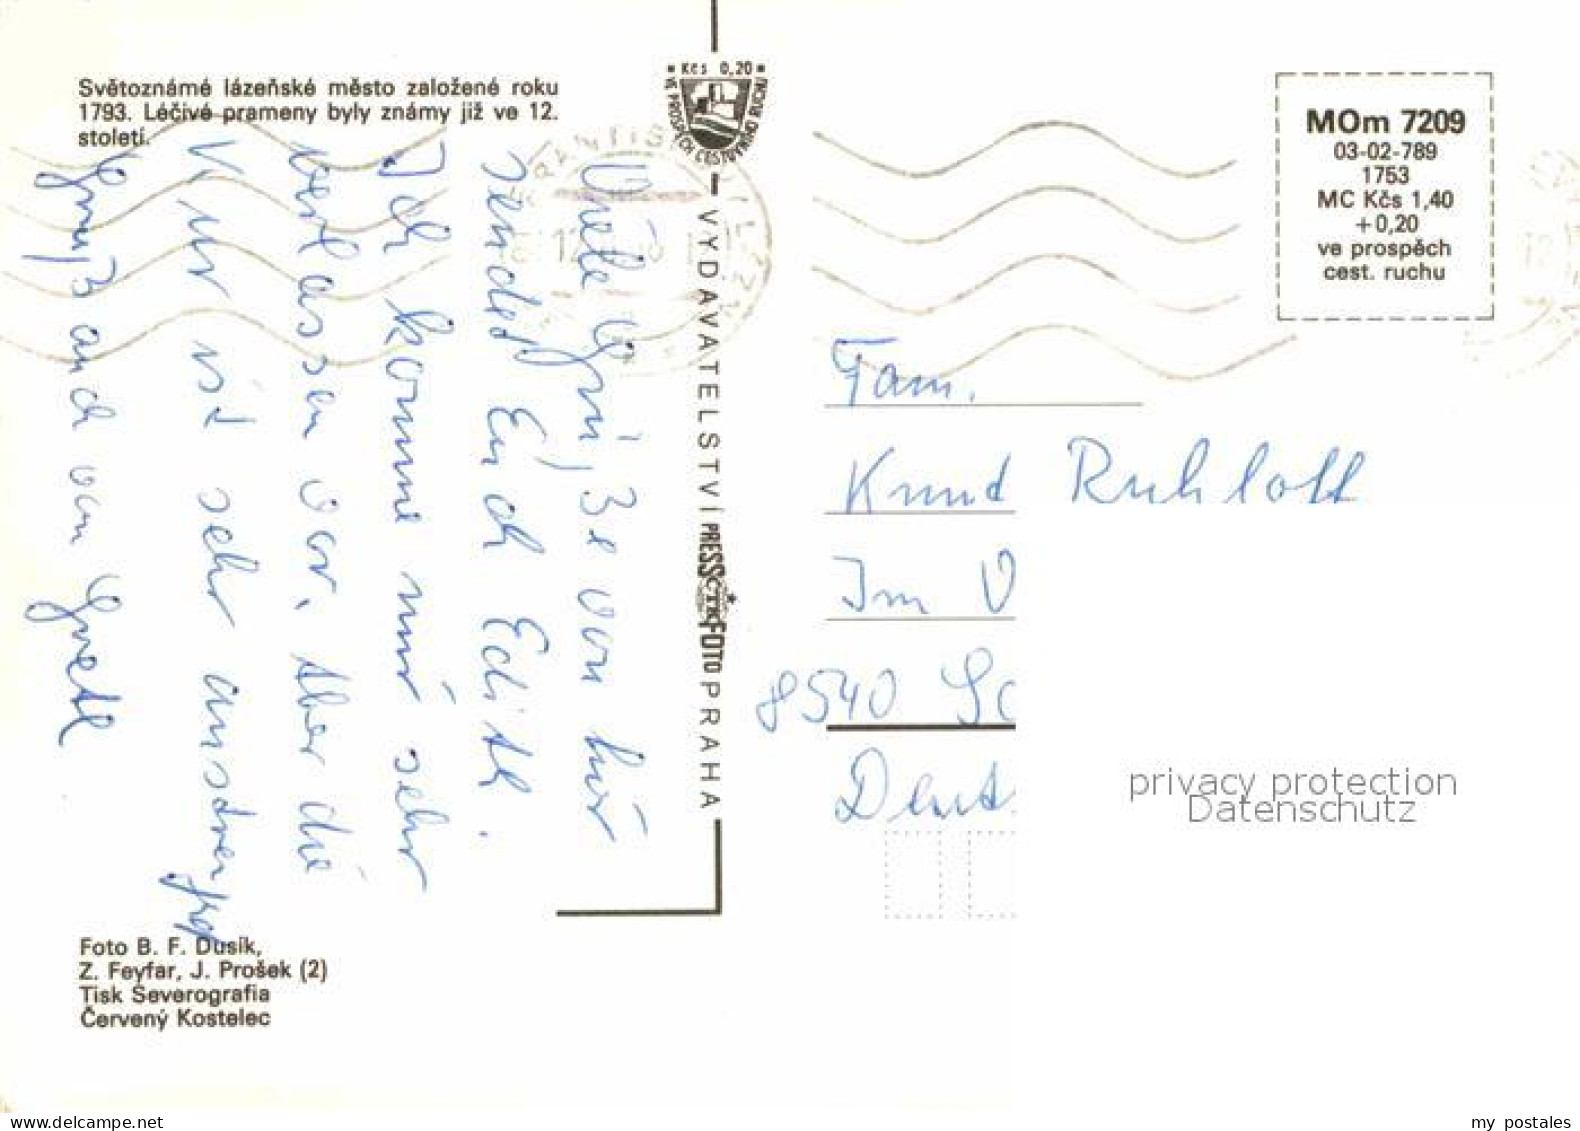 Světoznámé lázeňské město založené roku
1793. Léčivé prameny byly známy již ve 12.
století.
Kčs 0,20
VE PROSPĚCH CESTOVNÍHO RUCHU
MOm 7209
03-02-789
1753
MC Kčs 1,40
+0,20
ve prospěch
cest. ruchu
Viele Grüße von hier
sendet Euch Edith.
Ich komme mir sehr
verlassen vor. Aber die
Kur ist sehr anstrengend
Gruß auch von Gretl
VYDAVATELSTVÍ PRESSFOTO PRAHA
ČTK
Fam.
Knud Ruhloff
Im V
8540 Sc
Deut
privacy protection
Datenschutz
Foto B. F. Dusík,
Z. Feyfar, J. Prošek (2)
Tisk Severografia
Červený Kostelec
www.delcampe.net
my postales